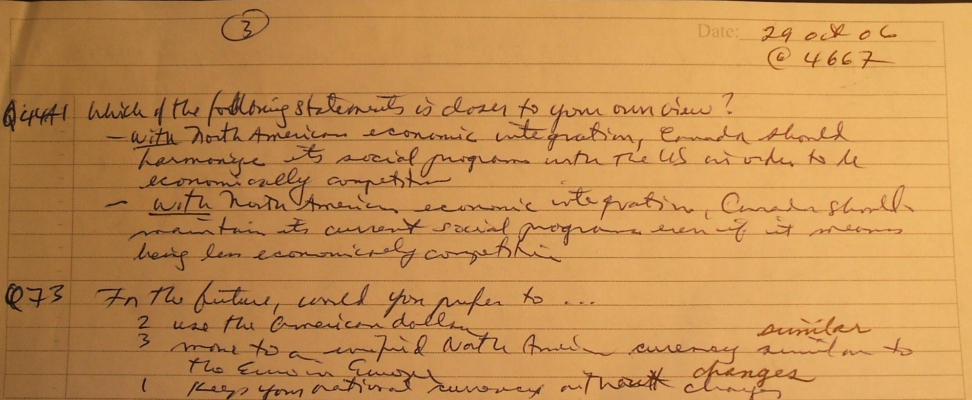 3
Date: 29 Oct 06
@ 4667
Q44A1 Which of the following statements is closer to your own view?
– with North American economic integration, Canada should
harmonize its social programs with the US in order to be
economically competitive
– with North American economic integration, Canada should
maintain its current social programs even if it means
being less economically competitive
Q73 In the future, would you prefer to ...
2 use the American dollar
similar
3 move to a unified North American currency similar to
the Euro in Europe
changes
1 keep your national currency without changes